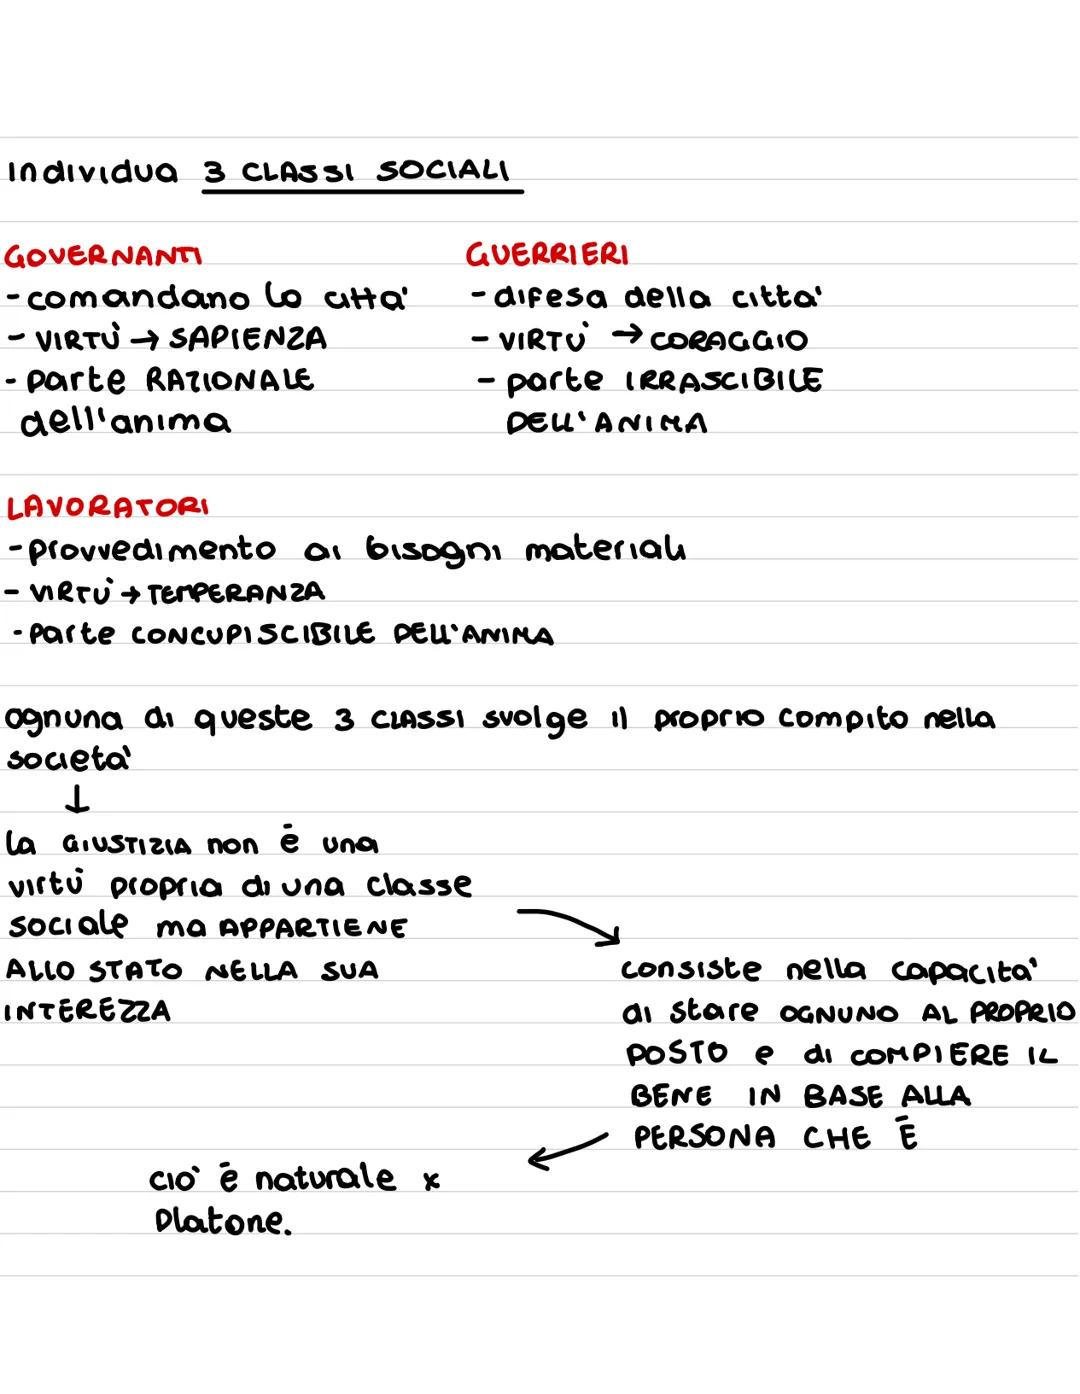 Individua 3 CLASSI SOCIALI
GOVERNANTI
- comandano la città
- VIRTÙ → SAPIENZA
- parte RAZIONALE
dell'anima
GUERRIERI
- difesa della città
- VIRTÙ → CORAGGIO
- parte IRRASCIBILE
DELL'ANIMA
LAVORATORI
- provvedimento ai bisogni materiali
- VIRTÙ → TEMPERANZA
- parte CONCUPISCIBILE DELL'ANIMA
ognuna di queste 3 CLASSI svolge il proprio compito nella
società
↓
la GIUSTIZIA non è una
virtù propria di una classe
sociale ma APPARTIENE
ALLO STATO NELLA SUA
INTEREZZA
consiste nella capacità
di stare OGNUNO AL PROPRIO
POSTO e di COMPIERE IL
BENE IN BASE ALLA
PERSONA CHE È
ciò è naturale x
Platone.